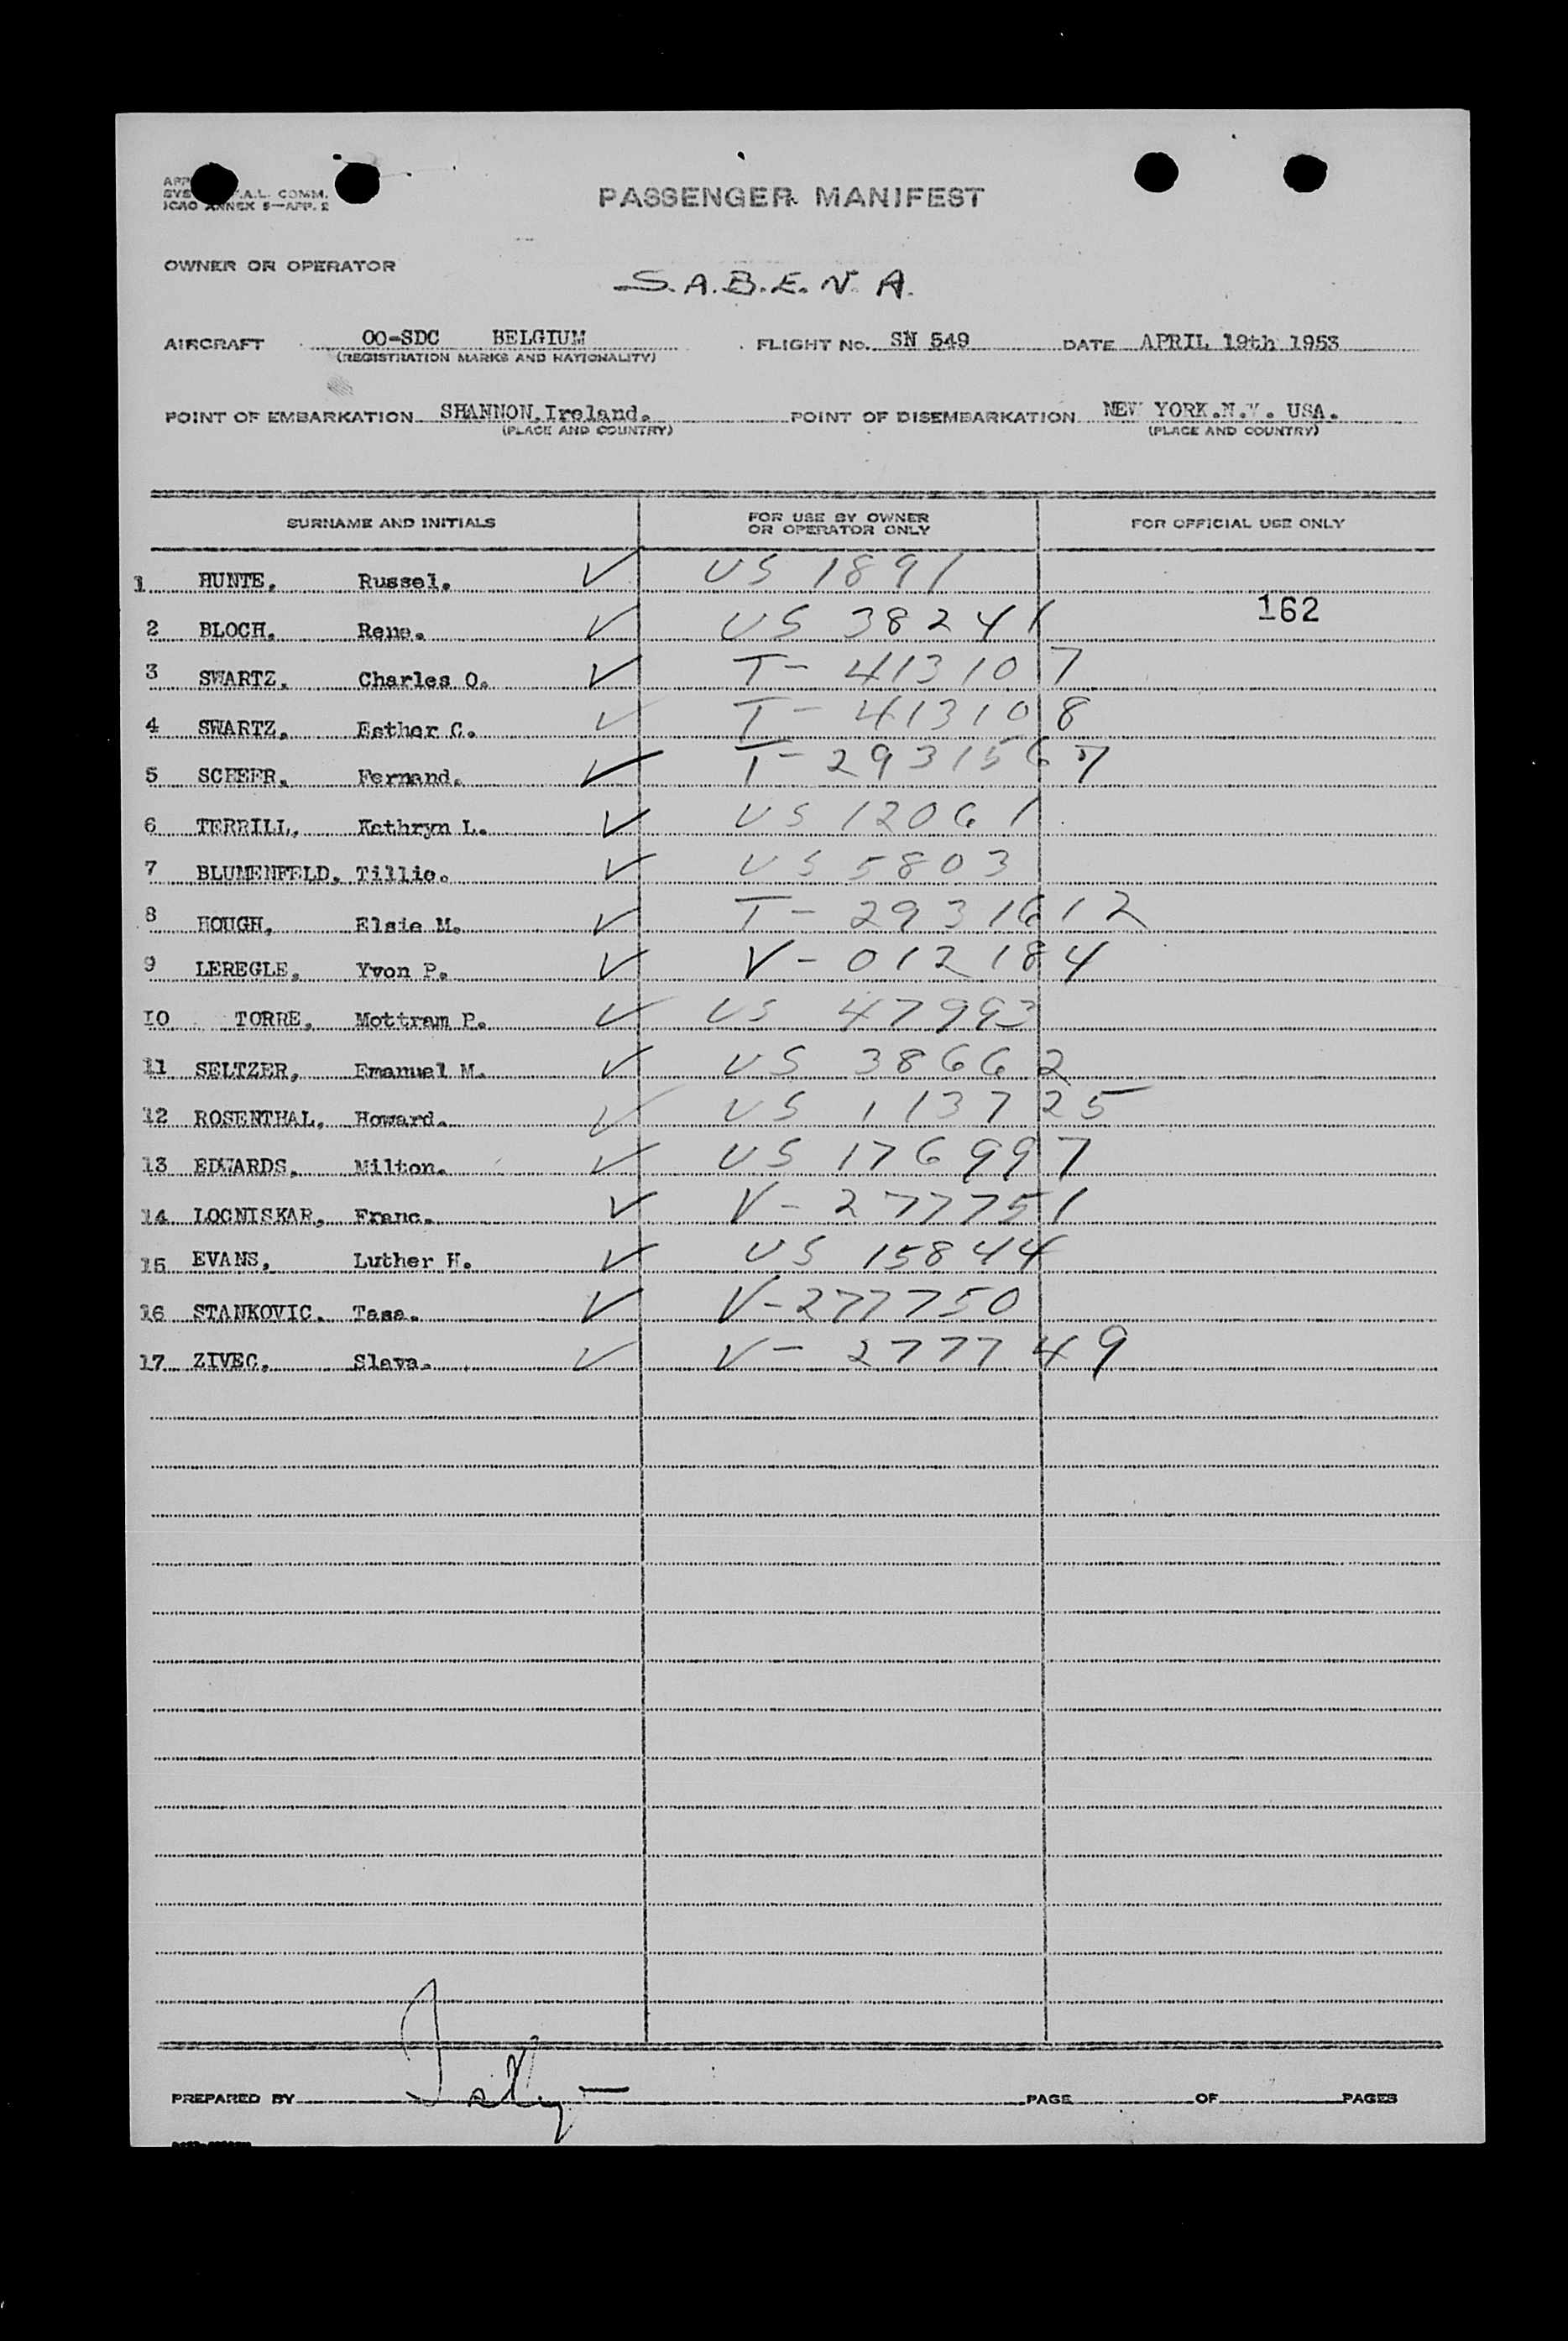 PASSENGER MANIFEST
A.L. COMM.
ICAO ANNEX 9—APP. 2
OWNER OR OPERATOR
S.A.B.E.N.A.
AIRCRAFT OO-SDC BELGIUM FLIGHT No. SN 549 DATE APRIL 19th 1953
(REGISTRATION MARKS AND NATIONALITY)
POINT OF EMBARKATION SHANNON.Ireland. POINT OF DISEMBARKATION NEW YORK.N.Y. USA.
(PLACE AND COUNTRY) (PLACE AND COUNTRY)
SURNAME AND INITIALS FOR USE BY OWNER OR OPERATOR ONLY FOR OFFICIAL USE ONLY
1 HUNTE. Russel. ✓ US 1891
162
2 BLOCH. Rene. ✓ US 38241
3 SWARTZ. Charles O. ✓ T- 413107
4 SWARTZ. Esther C. ✓ T- 413108
5 SCHEER. Fernand. ✓ T- 2931567
6 TERRILL. Kathryn L. ✓ US 12061
7 BLUMENFELD. Tillie. ✓ US 5803
8 HOUGH. Elsie M. ✓ T- 2931612
9 LEREGLE. Yvon P. ✓ V- 012184
10 TORRE. Mottram P. ✓ US 47993
11 SELTZER. Emanuel M. ✓ US 38662
12 ROSENTHAL. Howard. ✓ US 113725
13 EDWARDS. Milton. ✓ US 176997
14 LOCNISKAR. Franc. ✓ V- 277751
15 EVANS. Luther H. ✓ US 15844
16 STANKOVIC. Tasa. ✓ V-277750
17 ZIVEC. Slava. ✓ V- 277749
PREPARED BY PAGE OF PAGES